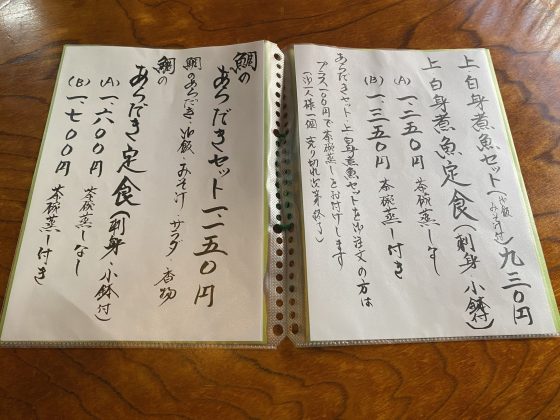 上 白身煮魚セット(御飯 みそ汁付)九三〇円
上 白身煮魚定食(刺身 小鉢付)
(A) 一、二五〇円 茶碗蒸しなし
(B) 一、三五〇円 茶碗蒸し付き
あらだきセット・上白身煮魚セットを御注文の方は
プラス一〇〇円で茶碗蒸しをお付けします
(御一人様一個 売り切れ次第終了)
鯛の あらだきセット 一、一五〇円
鯛のあらだき・御飯・みそ汁・サラダ・香物
鯛の あらだき定食(刺身 小鉢付)
(A) 一、六〇〇円 茶碗蒸しなし
(B) 一、七〇〇円 茶碗蒸し付き